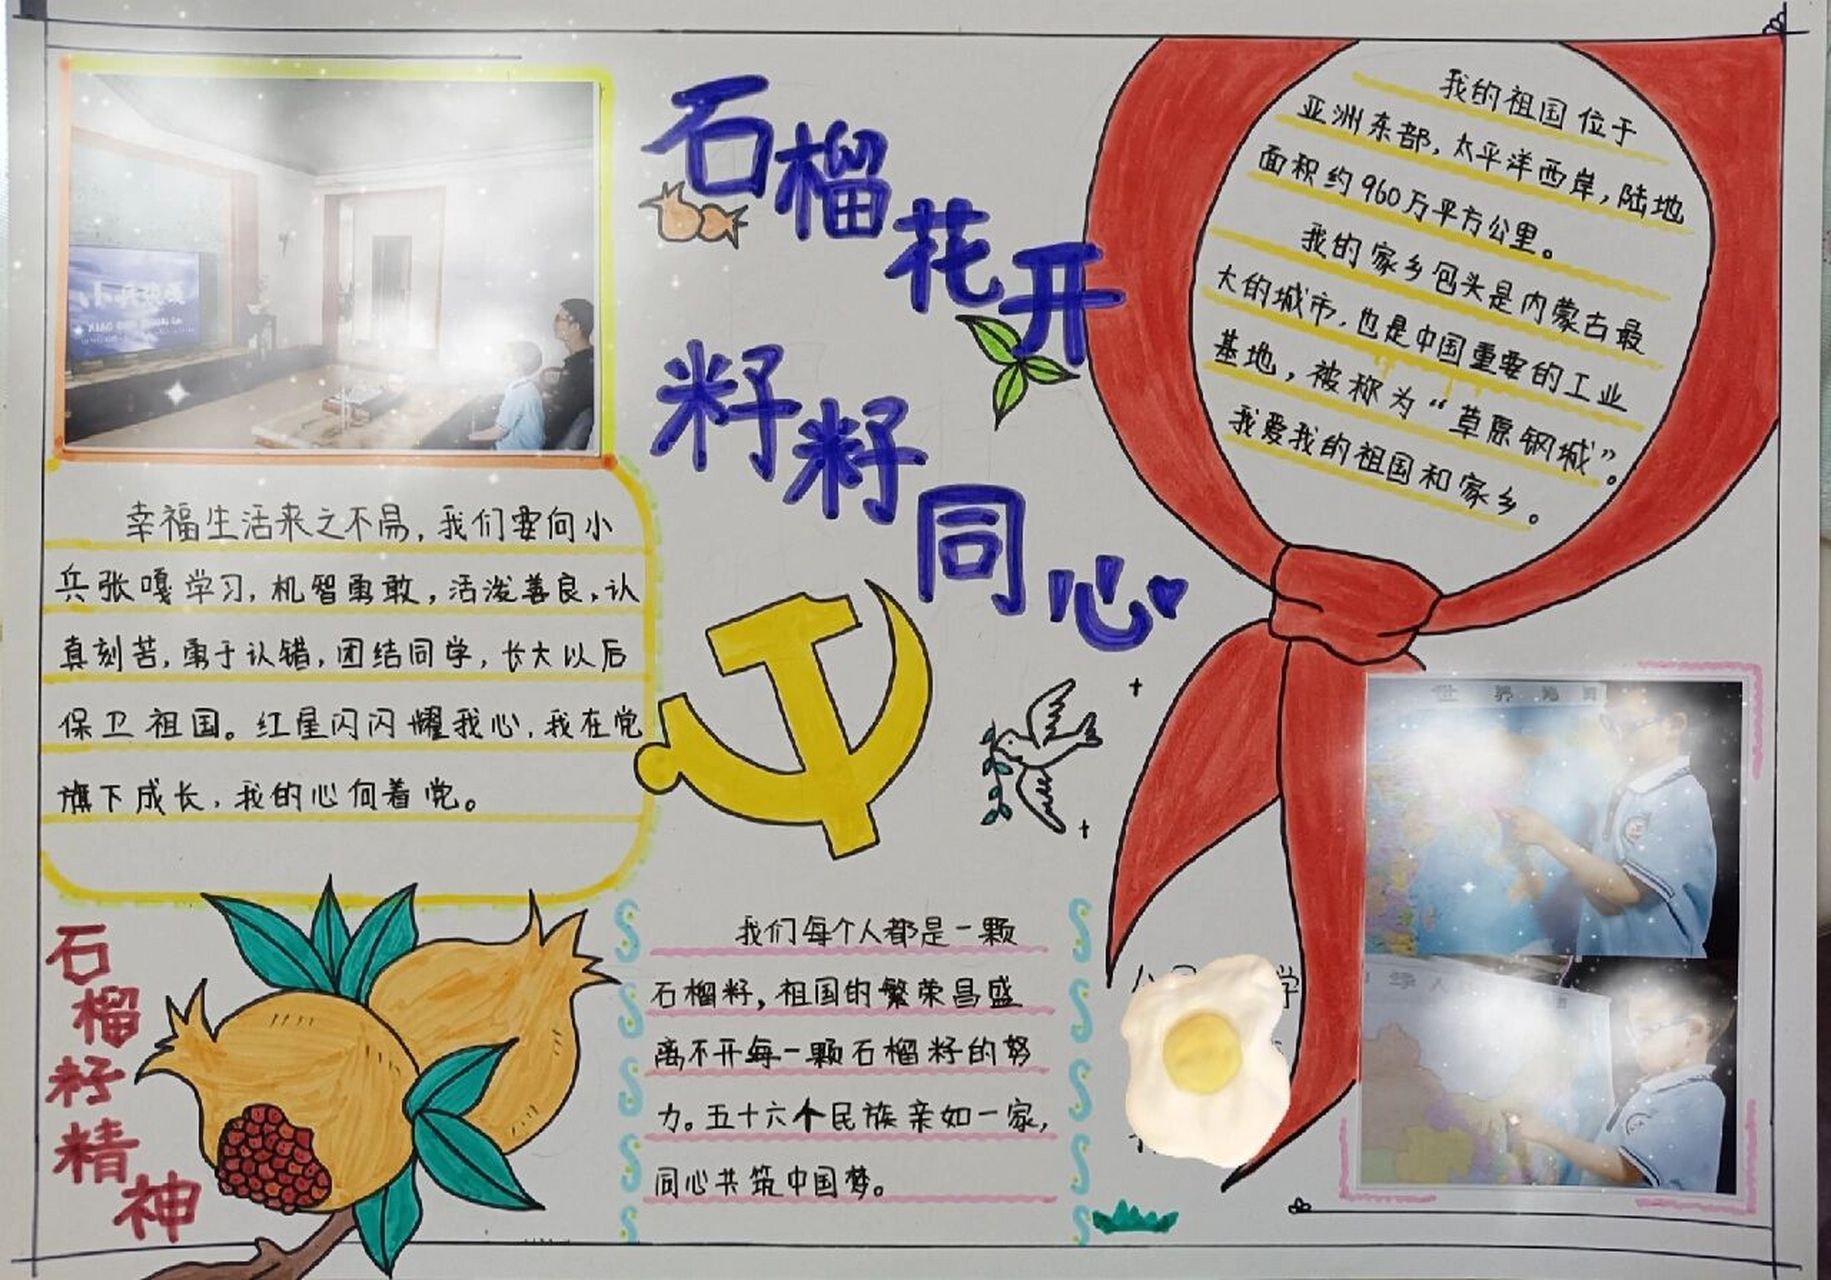 石榴花开
籽籽同心
我的祖国位于
亚洲东部，太平洋西岸，陆地
面积约960万平方公里。
我的家乡包头是内蒙古最
大的城市，也是中国重要的工业
基地，被称为“草原钢城”。
我爱我的祖国和家乡。
幸福生活来之不易，我们要向小
兵张嘎学习，机智勇敢，活泼善良，认
真刻苦，勇于认错，团结同学，长大以后
保卫祖国。红星闪闪耀我心，我在党
旗下成长，我的心向着党。
石榴籽精神
我们每个人都是一颗
石榴籽，祖国的繁荣昌盛
离不开每一颗石榴籽的努
力。五十六个民族亲如一家，
同心共筑中国梦。
世界地图